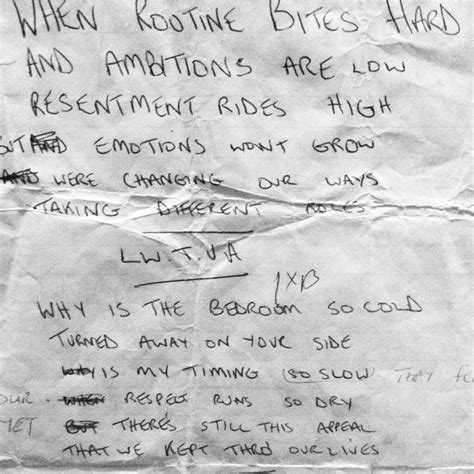 WHEN ROUTINE BITES HARD
AND AMBITIONS ARE LOW
RESENTMENT RIDES HIGH
BUT EMOTIONS WONT GROW
WERE CHANGING OUR WAYS
TAKING DIFFERENT ROLES
L.W.T.U.A
WHY IS THE BEDROOM SO COLD
TURNED AWAY ON YOUR SIDE
IS MY TIMING (SO SLOW) THEY
OUR RESPECT RUNS SO DRY
YET THERE'S STILL THIS APPEAL
THAT WE KEPT THRO OUR LIVES